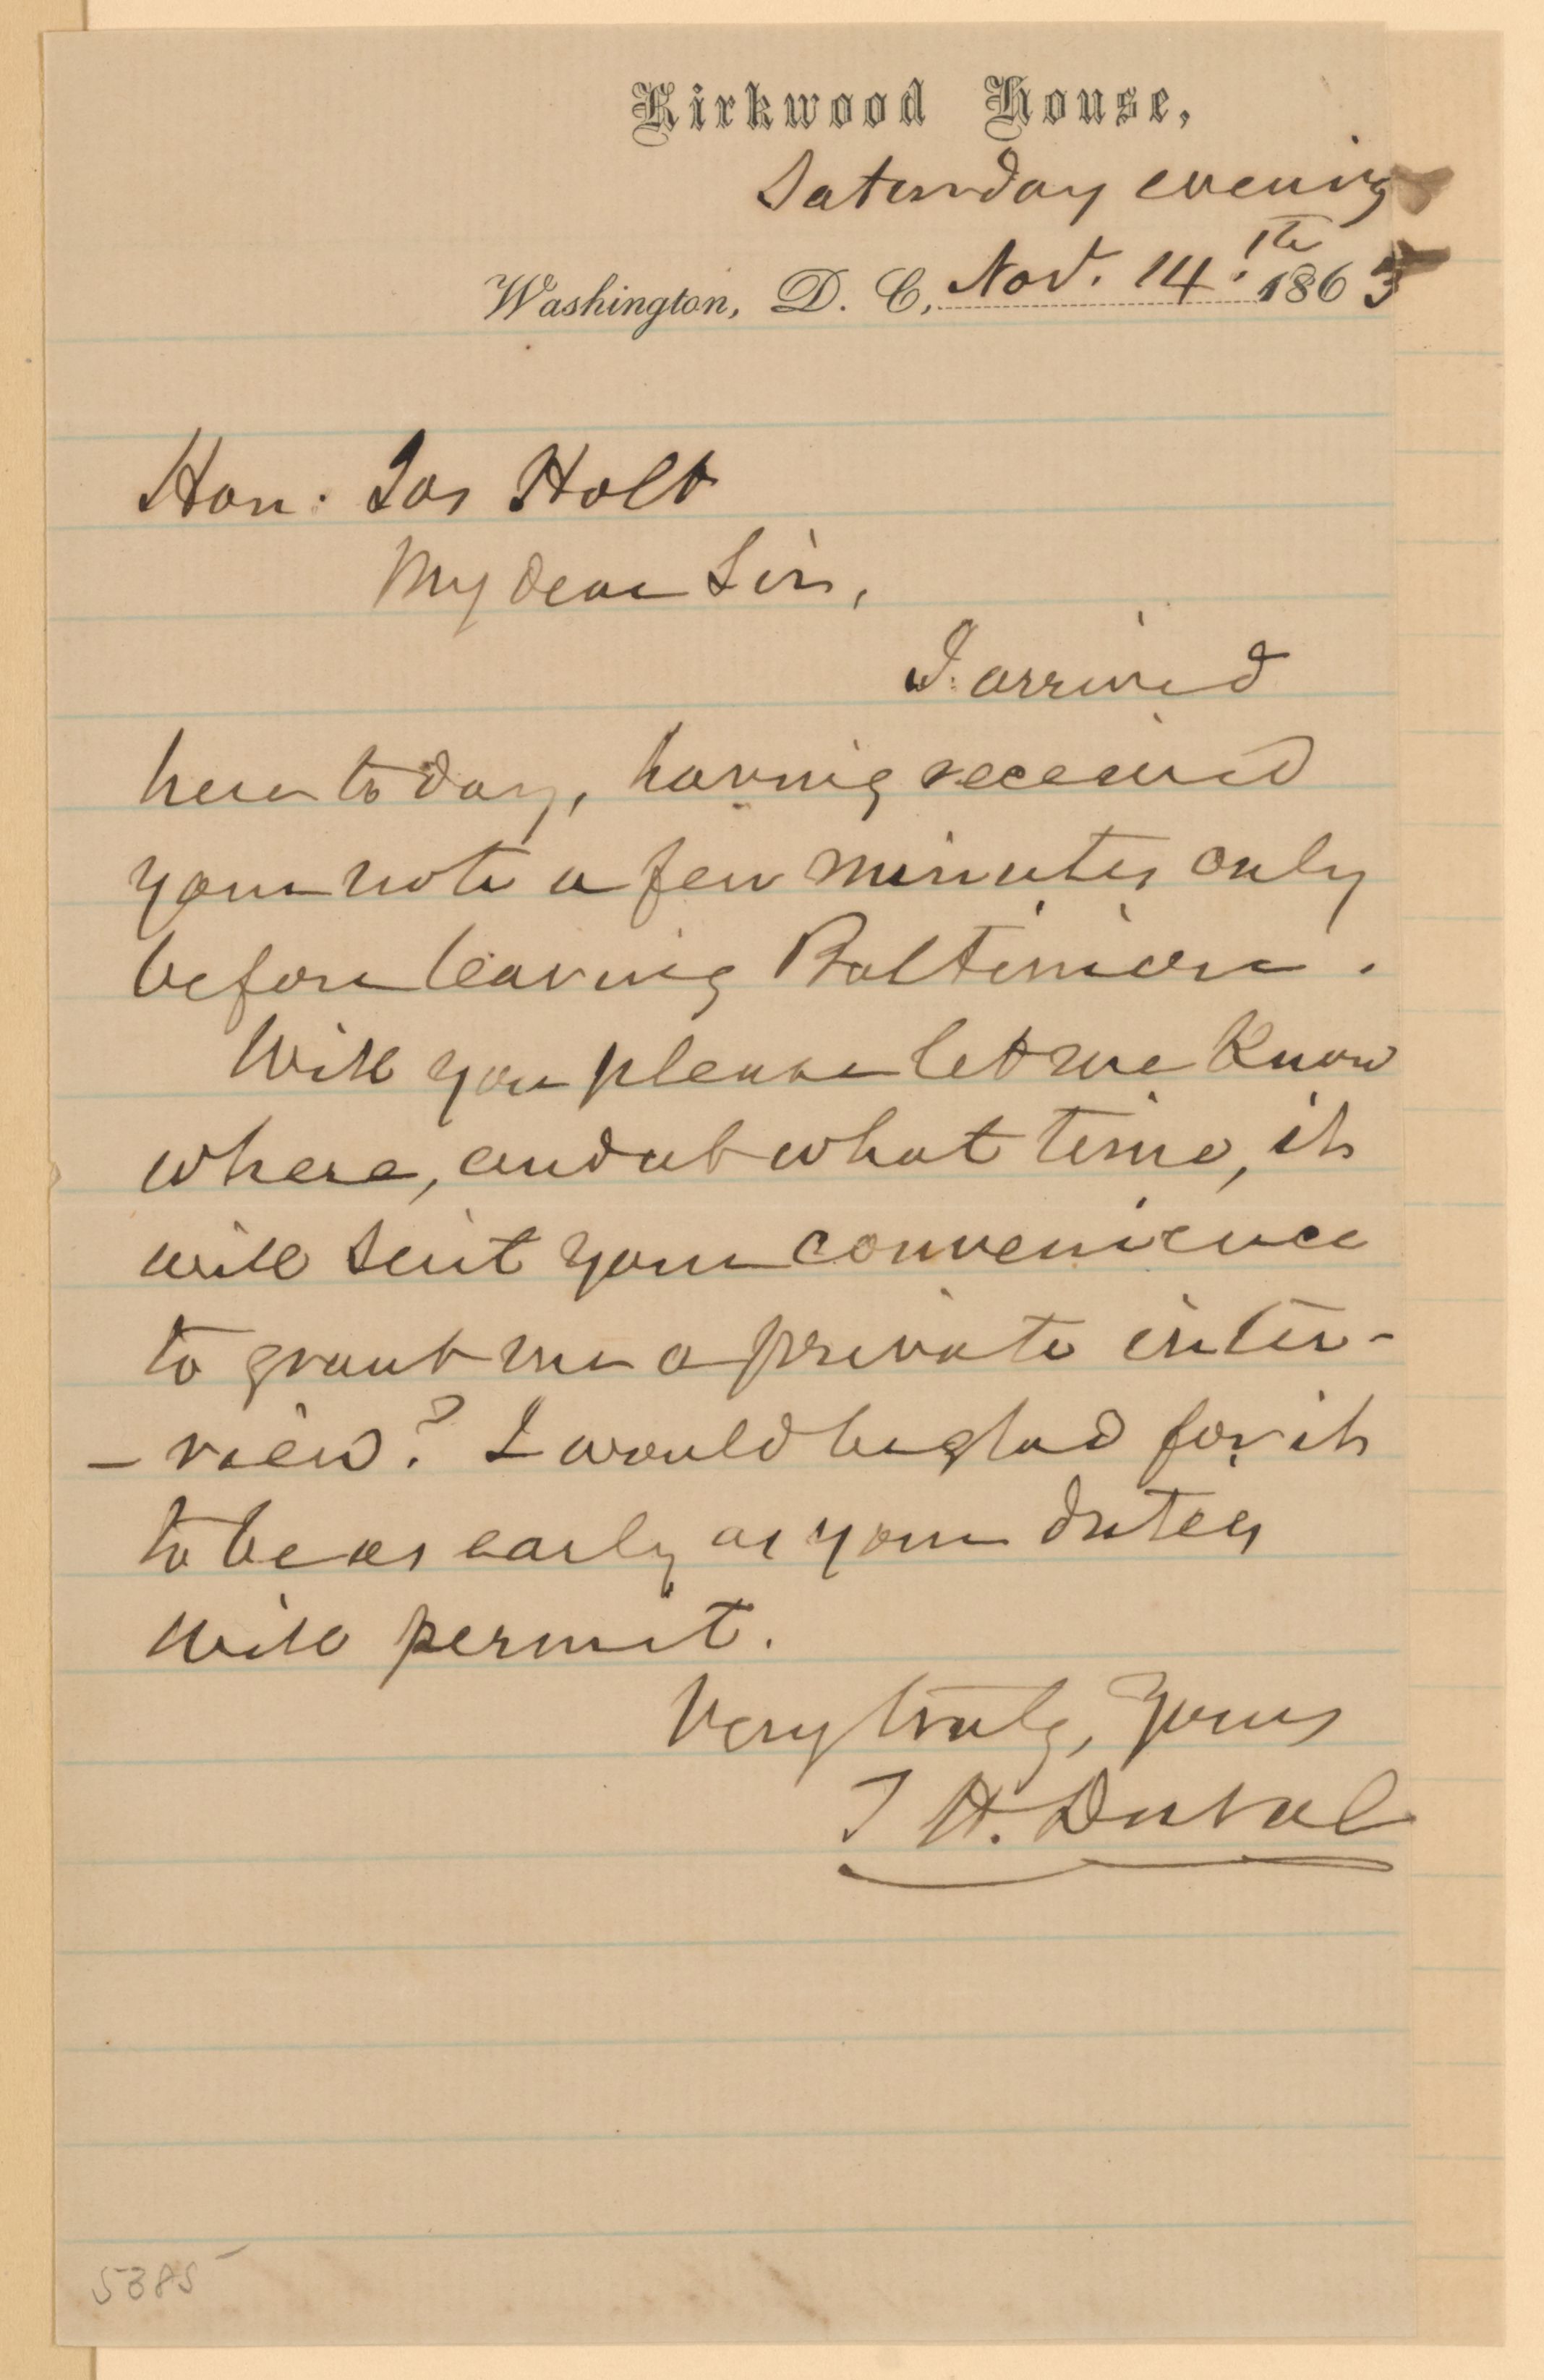 Kirkwood House,
Saturday evening
Washington, D. C, Nov. 14th 1863
Hon: Jos Holt
My dear Sir,
I arrived
here to day, having received
your note a few minutes only
before leaving Baltimore.
Will you please let me know
where, and at what time, it
will suit your convenience
to grant me a private inter-
- view? I would be glad for it
to be as early as your duties
will permit.
Very truly, Yours
T H. Duval
5385